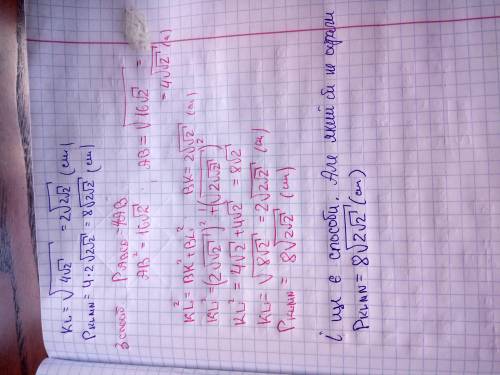 KL = √(4√2) = 2√(2√2) (cm)
PKLMN = 4·2√(2√2) = 8√(2√2) (cm)
3 спосіб PABCD = 4AB
AB² = 16√2 AB = √(16√2) =
= 4√(√2) (см)
KL² = BK² + BL² BK = 2√(√2) (cm)
KL² = (2√(√2))² + (2√(√2))²
KL² = 4√2 + 4√2 = 8√2
KL = √(8√2) = 2√(2√2) (cm)
PKLMN = 8√(2√2) (cm)
і ще є способи. Але який би не обрали
PKLMN = 8√(2√2) (cm)